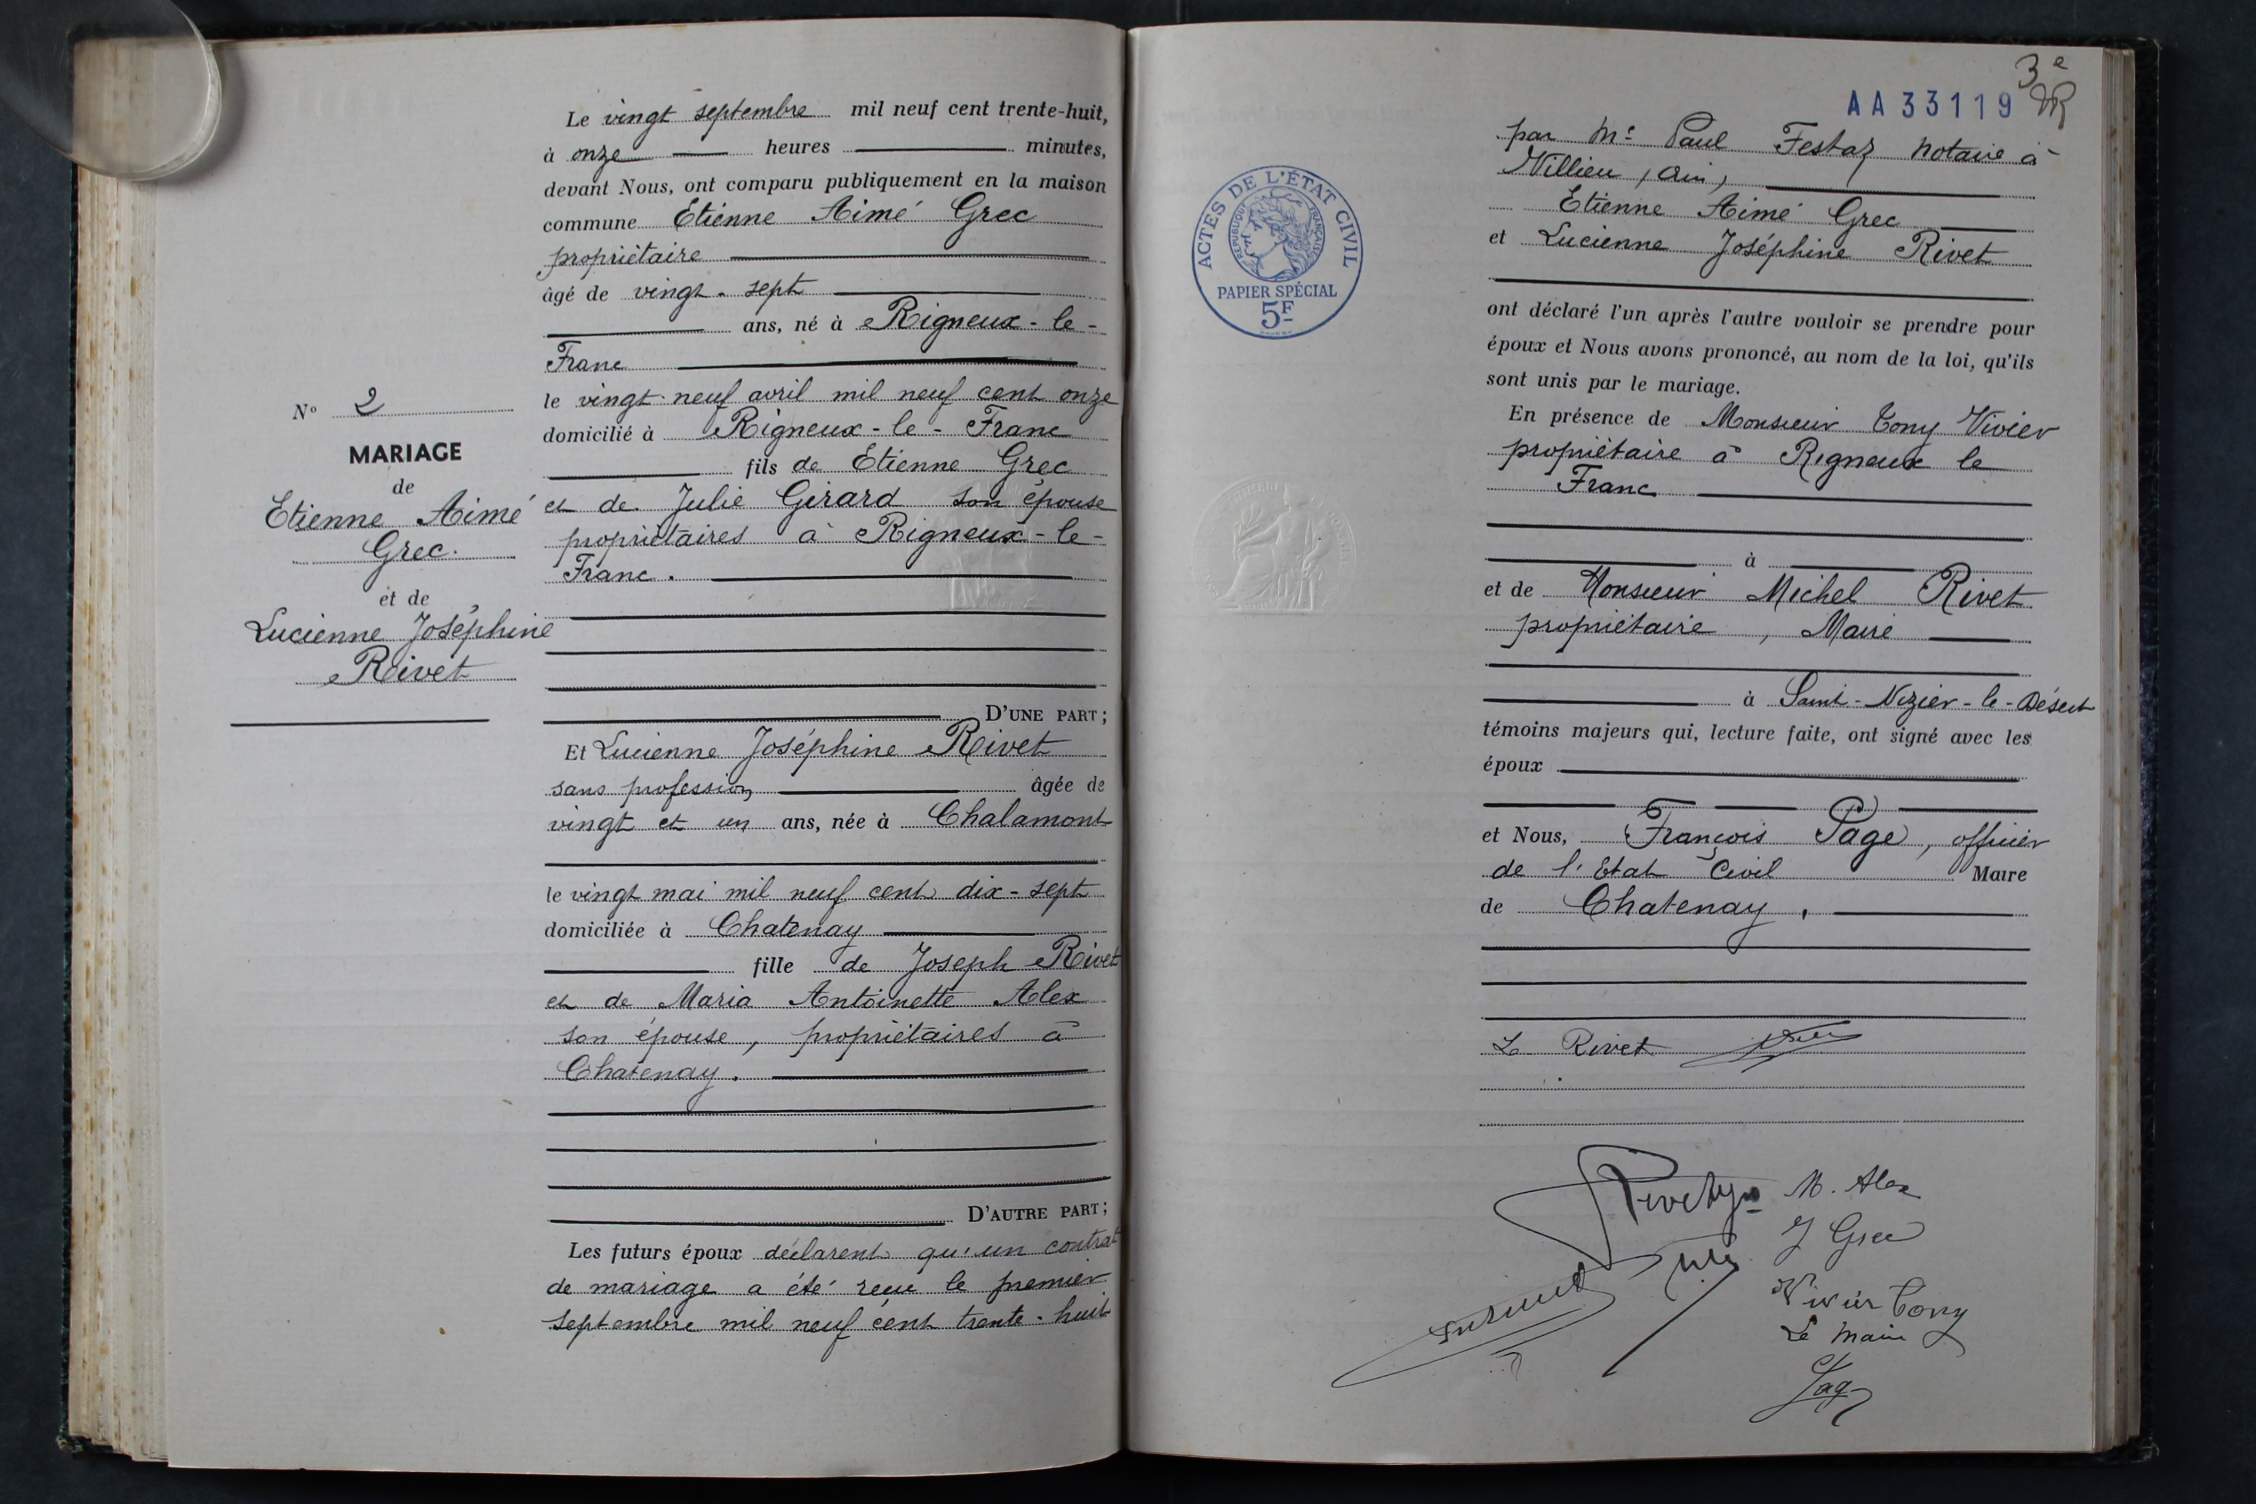 N° 2
MARIAGE
de
Etienne Aimé
Grec.
et de
Lucienne Joséphine
Rivet
Le vingt septembre mil neuf cent trente-huit,
à onze heures minutes,
devant Nous, ont comparu publiquement en la maison
commune Etienne Aimé Grec
propriétaire
âgé de vingt-sept
ans, né à Rigneux-le-
Franc
le vingt-neuf avril mil neuf cent onze
domicilié à Rigneux-le-Franc
fils de Etienne Grec
et de Julie Girard son épouse
propriétaires à Rigneux-le-
Franc.
D'UNE PART;
Et Lucienne Joséphine Rivet
sans profession âgée de
vingt et un ans, née à Chalamont
le vingt mai mil neuf cent dix-sept
domiciliée à Chatenay
fille de Joseph Rivet
et de Maria Antoinette Alex
son épouse, propriétaires à
Chatenay.
D'AUTRE PART;
Les futurs époux déclarent qu'un contrat
de mariage a été recu le premier
septembre mil neuf cent trente-huit
3e
AA33119
ACTES DE L'ÉTAT CIVIL
RÉPUBLIQUE FRANÇAISE
PAPIER SPÉCIAL
5F
par Me Paul Festaz notaire à
Villieu, Ain,
Etienne Aimé Grec
et Lucienne Joséphine Rivet
ont déclaré l'un après l'autre vouloir se prendre pour
époux et Nous avons prononcé, au nom de la loi, qu'ils
sont unis par le mariage.
En présence de Monsieur Tony Vivier
propriétaire à Rigneux le
Franc
à
et de Monsieur Michel Rivet
propriétaire, Maire
à Saint-Nizier-le-Désert
témoins majeurs qui, lecture faite, ont signé avec les
époux
et Nous, François Page, officier
de l'Etat Civil Maire
de Chatenay.
L Rivet
M. Alex
J Grec
Vivier Tony
Le Maire
Page